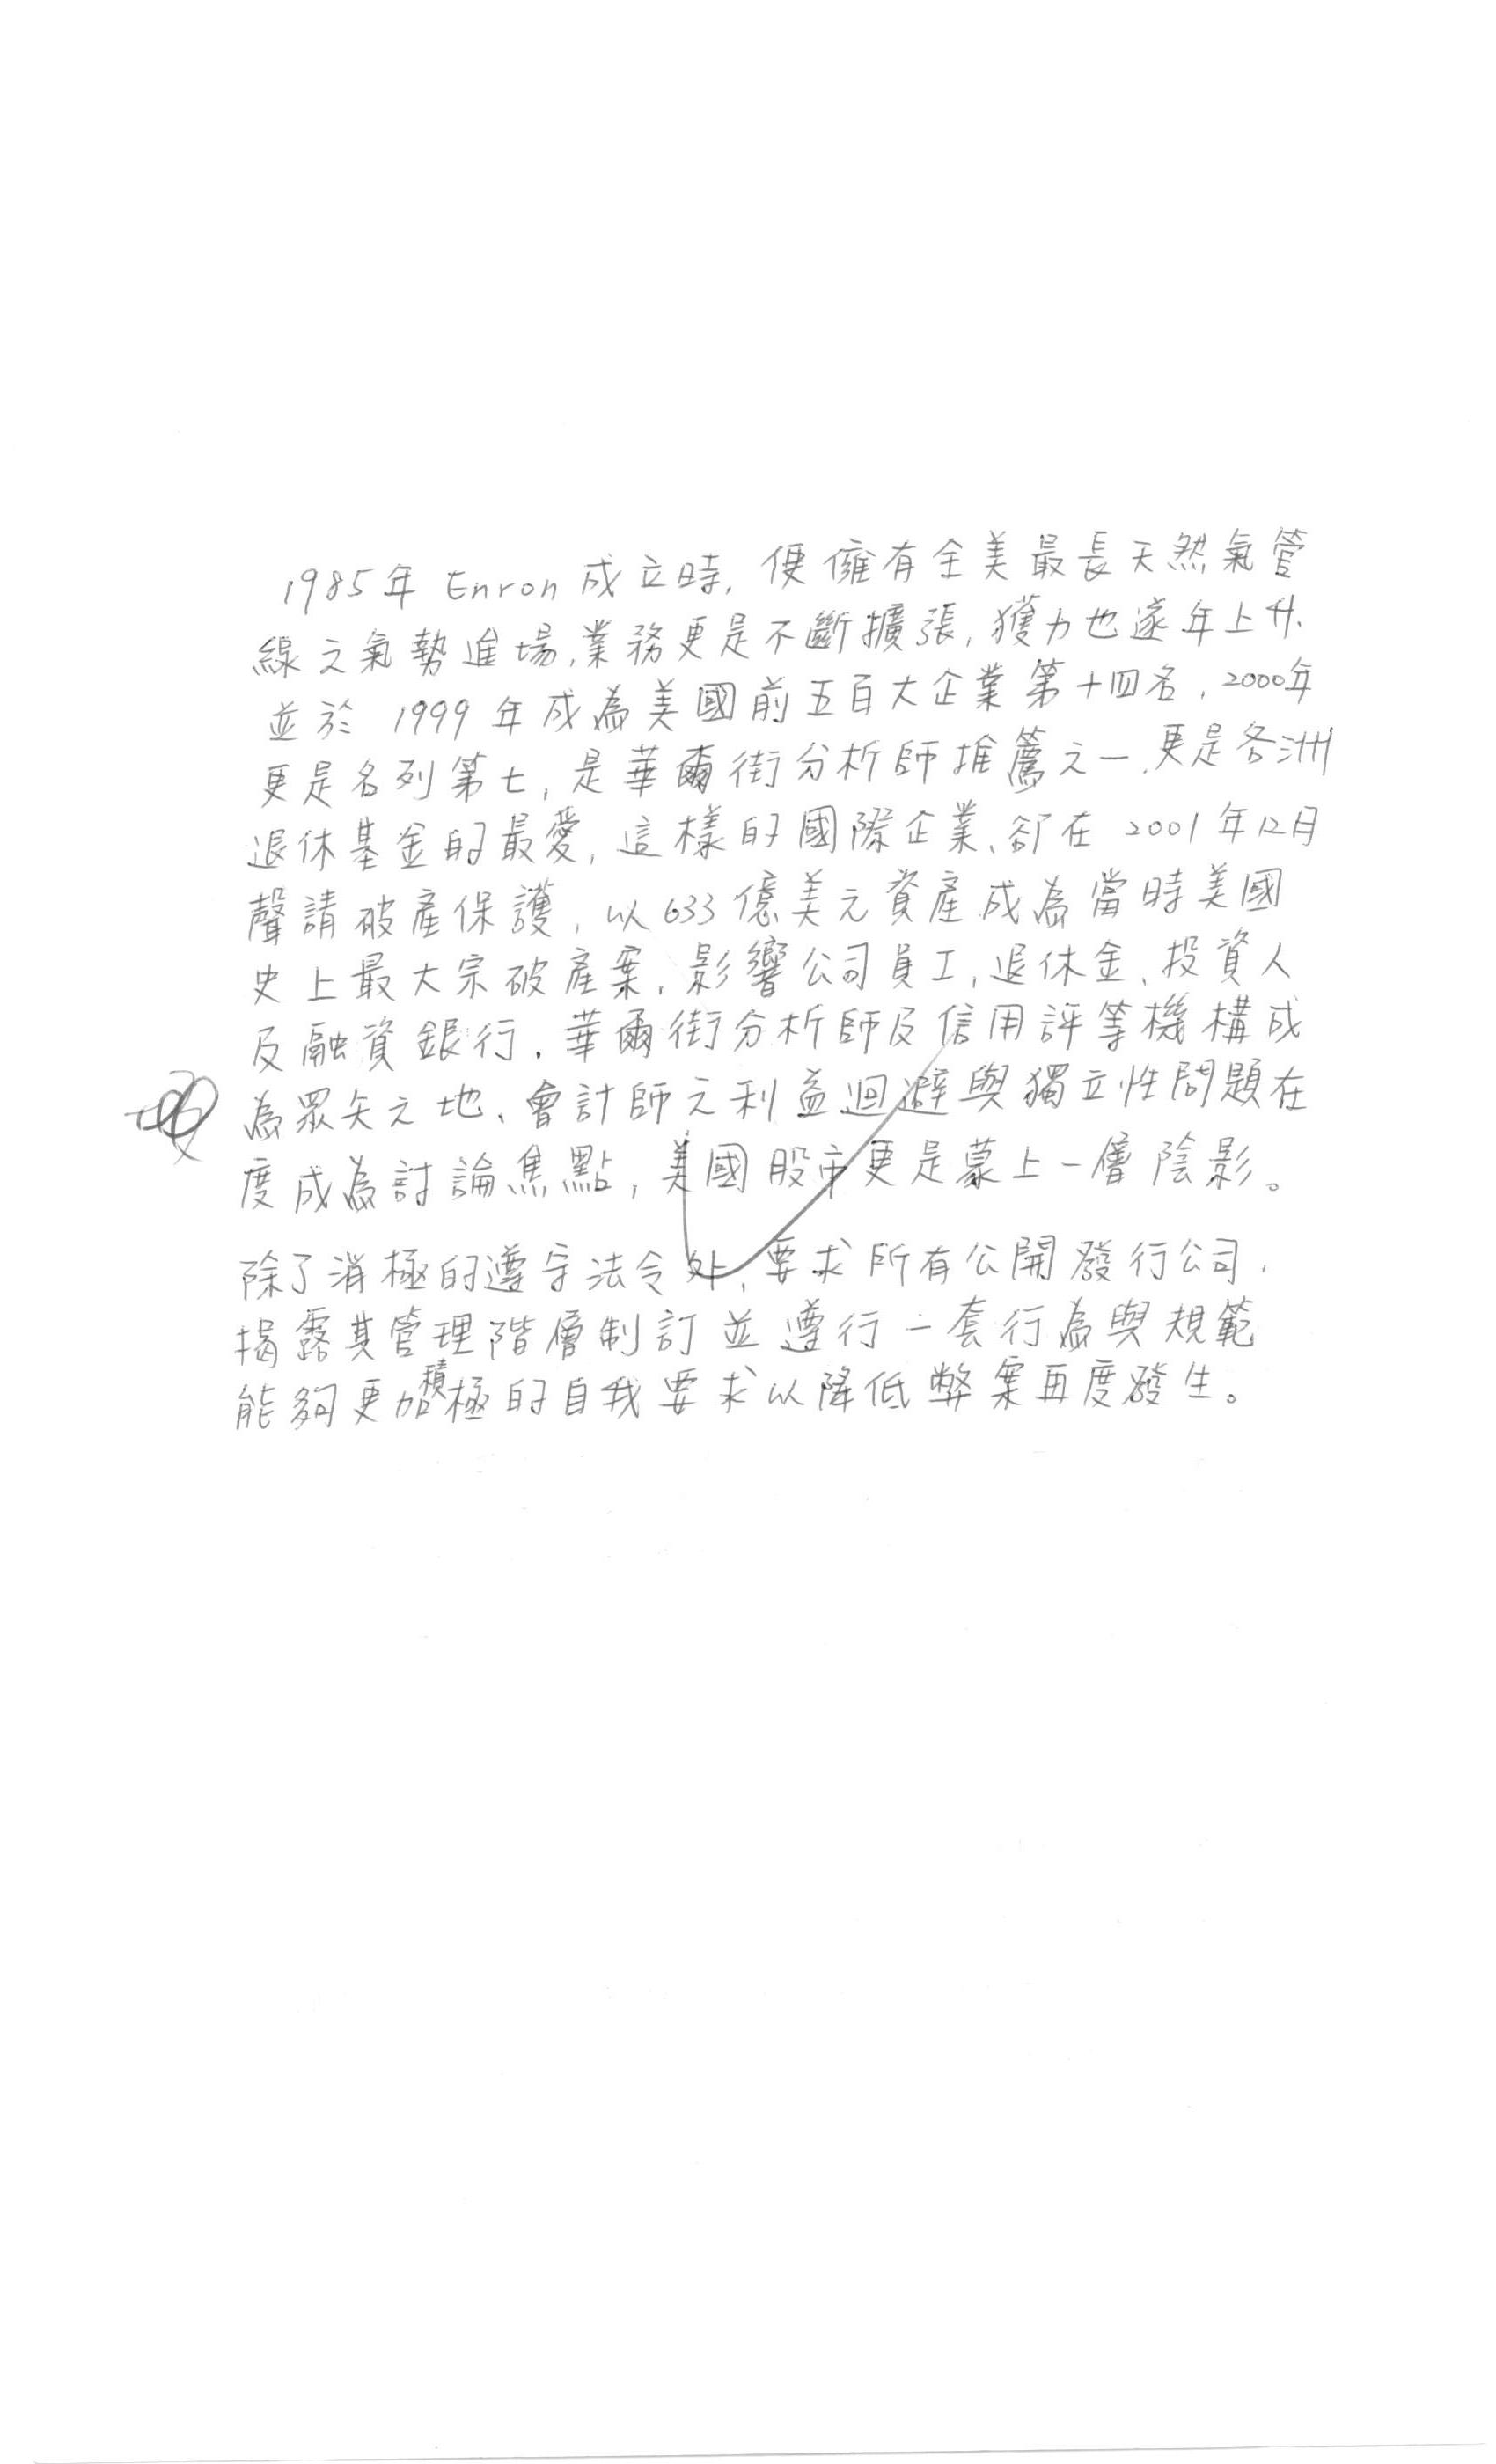 1985年 Enron成立時, 便擁有全美最長天然氣管
線之氣勢進場,業務更是不斷擴張, 獲力也逐年上升、
並於 1999年成為美國前五百大企業第十四名, 2000年
更是名列第七, 是華爾街分析師推薦之一、更是各洲
退休基金的最愛, 這樣的國際企業、卻在 2001年12月
聲請破產保護, 以633億美元資產成為當時美國
史上最大宗破產案, 影響公司員工, 退休金、投資人
及融資銀行. 華爾街分析師及信用評等機構成
為眾矢之地、會計師之利益迴避與獨立性問題在
度成為討論焦點, 美國股市更是蒙上一層陰影。
除了消極的遵守法令外, 要求所有公開發行公司,
揭露其管理階層制訂並遵行一套行為與規範
能夠更加積極的自我要求以降低弊案再度發生。